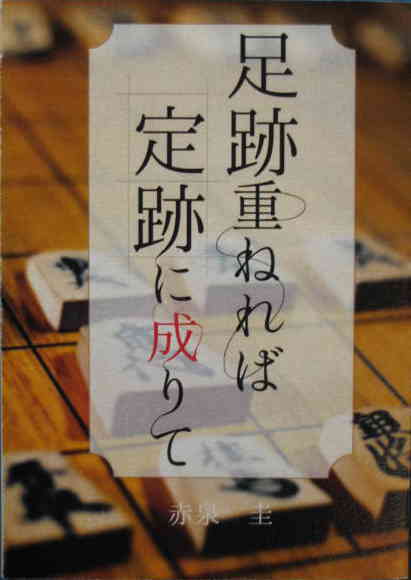 足跡重ねれば
定跡に成りて
赤泉 圭